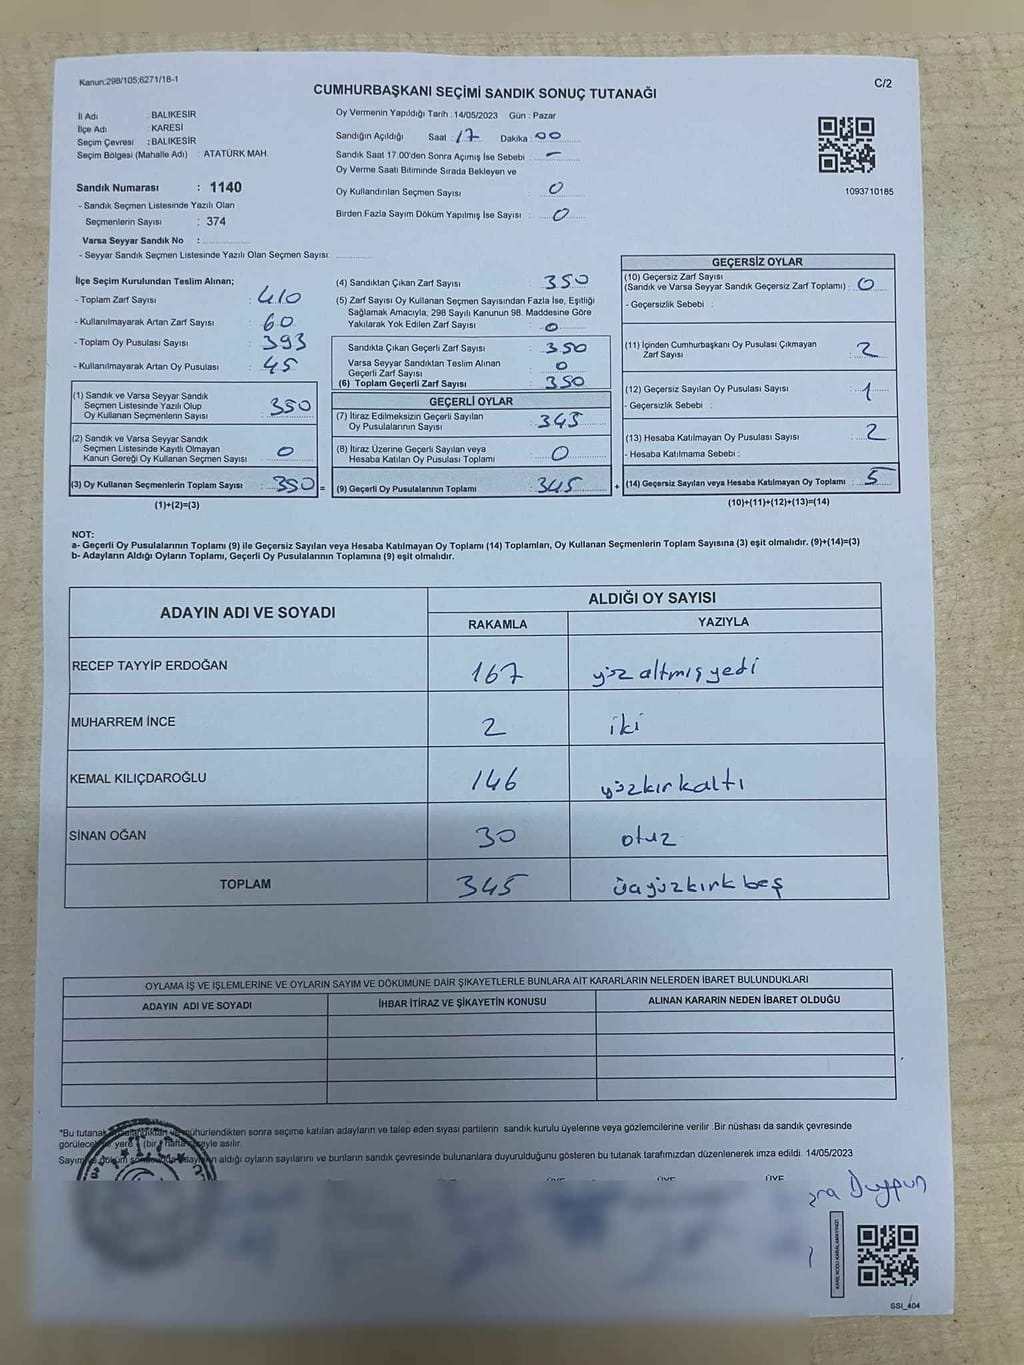 Kanun:298/105;6271/18-1
C/2
CUMHURBAŞKANI SEÇİMİ SANDIK SONUÇ TUTANAĞI
İl Adı : BALIKESİR
İlçe Adı : KARESİ
Seçim Çevresi : BALIKESİR
Seçim Bölgesi (Mahalle Adı) : ATATÜRK MAH.
Sandık Numarası : 1140
- Sandık Seçmen Listesinde Yazılı Olan
Seçmenlerin Sayısı : 374
Varsa Seyyar Sandık No :
- Seyyar Sandık Seçmen Listesinde Yazılı Olan Seçmen Sayısı
Oy Vermenin Yapıldığı Tarih : 14/05/2023 Gün : Pazar
Sandığın Açıldığı Saat : 17 Dakika : 00
Sandık Saat 17.00'den Sonra Açımış İse Sebebi : -
Oy Verme Saati Bitiminde Sırada Bekleyen ve
Oy Kullandırılan Seçmen Sayısı : 0
Birden Fazla Sayım Döküm Yapılmış İse Sayısı : 0
1093710185
İlçe Seçim Kurulundan Teslim Alınan;
- Toplam Zarf Sayısı : 410
- Kullanılmayarak Artan Zarf Sayısı : 60
- Toplam Oy Pusulası Sayısı : 393
- Kullanılmayarak Artan Oy Pusulası : 45
(1) Sandık ve Varsa Seyyar Sandık
Seçmen Listesinde Yazılı Olup
Oy Kullanan Seçmenlerin Sayısı : 350
(2) Sandık ve Varsa Seyyar Sandık
Seçmen Listesinde Kayıtlı Olmayan
Kanun Gereği Oy Kullanan Seçmen Sayısı : 0
(3) Oy Kullanan Seçmenlerin Toplam Sayısı : 350 =
(1)+(2)=(3)
(4) Sandıktan Çıkan Zarf Sayısı : 350
(5) Zarf Sayısı Oy Kullanan Seçmen Sayısından Fazla İse, Eşitliği
Sağlamak Amacıyla, 298 Sayılı Kanunun 98. Maddesine Göre
Yakılarak Yok Edilen Zarf Sayısı : 0
Sandıkta Çıkan Geçerli Zarf Sayısı : 350
Varsa Seyyar Sandıktan Teslim Alınan
Geçerli Zarf Sayısı : 0
(6) Toplam Geçerli Zarf Sayısı : 350
GEÇERLİ OYLAR
(7) İtiraz Edilmeksizin Geçerli Sayılan
Oy Pusulalarının Sayısı : 345
(8) İtiraz Üzerine Geçerli Sayılan veya
Hesaba Katılan Oy Pusulası Toplamı : 0
(9) Geçerli Oy Pusulalarının Toplamı : 345 +
GEÇERSİZ OYLAR
(10) Geçersiz Zarf Sayısı
(Sandık ve Varsa Seyyar Sandık Geçersiz Zarf Toplamı) : 0
- Geçersizlik Sebebi :
(11) İçinden Cumhurbaşkanı Oy Pusulası Çıkmayan
Zarf Sayısı : 2
(12) Geçersiz Sayılan Oy Pusulası Sayısı : 1
- Geçersizlik Sebebi :
(13) Hesaba Katılmayan Oy Pusulası Sayısı : 2
- Hesaba Katılmama Sebebi :
(14) Geçersiz Sayılan veya Hesaba Katılmayan Oy Toplamı : 5
(10)+(11)+(12)+(13)=(14)
NOT:
a- Geçerli Oy Pusulalarının Toplamı (9) ile Geçersiz Sayılan veya Hesaba Katılmayan Oy Toplamı (14) Toplamları, Oy Kullanan Seçmenlerin Toplam Sayısına (3) eşit olmalıdır. (9)+(14)=(3)
b- Adayların Aldığı Oyların Toplamı, Geçerli Oy Pusulalarının Toplamına (9) eşit olmalıdır.
ADAYIN ADI VE SOYADI ALDIĞI OY SAYISI
RAKAMLA YAZIYLA
RECEP TAYYİP ERDOĞAN 167 yüz altmış yedi
MUHARREM İNCE 2 iki
KEMAL KILIÇDAROĞLU 146 yüzkırkaltı
SİNAN OĞAN 30 otuz
TOPLAM 345 üçyüzkırk beş
OYLAMA İŞ VE İŞLEMLERİNE VE OYLARIN SAYIM VE DÖKÜMÜNE DAİR ŞİKAYETLERLE BUNLARA AİT KARARLARIN NELERDEN İBARET BULUNDUKLARI
ADAYIN ADI VE SOYADI İHBAR İTİRAZ VE ŞİKAYETİN KONUSU ALINAN KARARIN NEDEN İBARET OLDUĞU
*Bu tutanak mühürlendikten sonra seçime katılan adayların ve talep eden siyasi partilerin sandık kurulu üyelerine veya gözlemcilerine verilir .Bir nüshası da sandık çevresinde
görülecek bir yere (bir) hafta süreyle asılır.
Sayım ve döküm aldığı oyların sayılarını ve bunların sandık çevresinde bulunanlara duyurulduğunu gösteren bu tutanak tarafımızdan düzenlenerek imza edildi. 14/05/2023
ÜYE ÜYE ÜYE
Duygun
KARE KODU KARALAMAYINIZ!
SSI_404